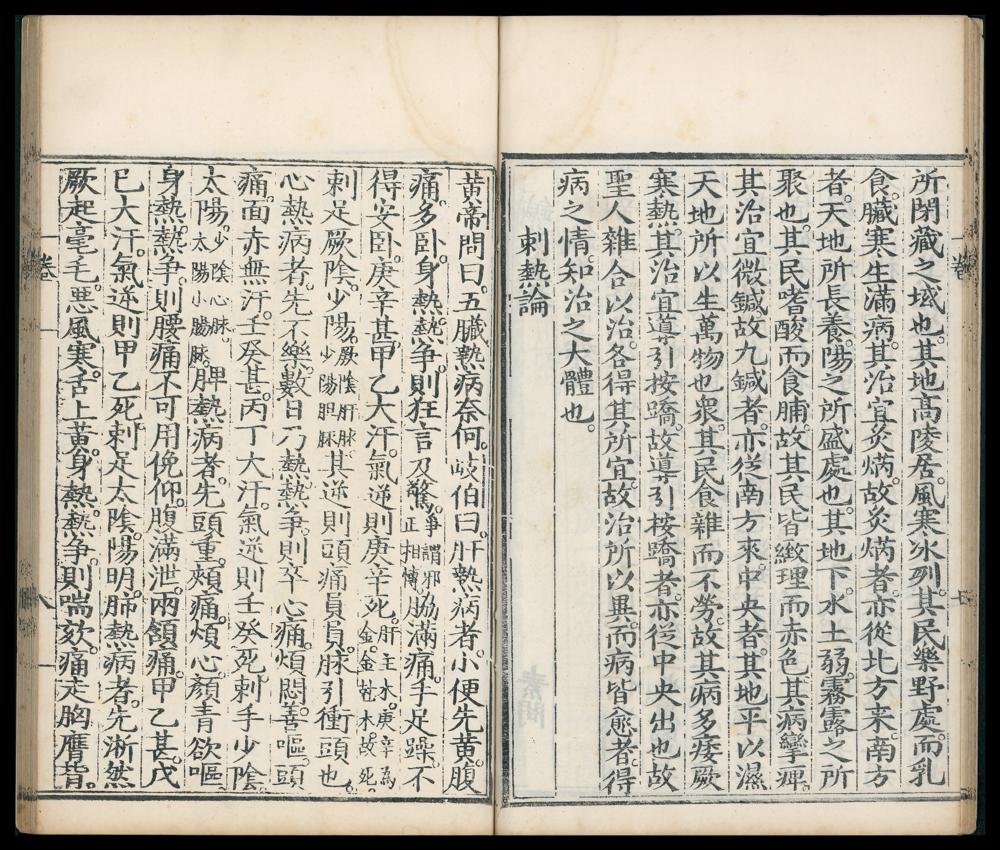 所閉藏之域也。其地高陵居。風寒冰列。其民樂野處。而乳
食。臟寒生滿病。其治宜灸焫。故灸焫者。亦從北方来。南方
者。天地所長養。陽之所盛處也。其地下。水土弱。霧露之所
聚也。其民嗜酸而食腩。故其民皆緻理而赤色。其病攣痺。
其治宜微鍼。故九鍼者。亦從南方來。中央者。其地平以濕
天地所以生萬物也衆。其民食雜而不勞。故其病多痿厥
寒熱。其治宜導引按蹻。故導引按蹻者。亦從中央出也。故
聖人雜合以治。各得其所宜。故治所以異。而病皆愈者。得
病之情。知治之大體也。
刺熱論
黄帝問曰。五臟熱病奈何。岐伯曰。肝熱病者。小便先黄。腹
痛。多卧。身熱。熱争。則狂言及驚。争謂邪正相愽脇滿痛。手足躁。不
得安卧。庚辛甚。甲乙大汗。氣逆則庚辛死。肝主木。庚辛為金。金尅木。故死。
刺足厥陰。少陽。厥陰肝脉。少陽胆脉其逆則頭痛員員。脉引衝頭也。
心熱病者。先不樂。數日乃熱。熱争。則卒心痛。煩悶。善嘔。頭
痛。面赤無汗。壬癸甚。丙丁大汗。氣逆則壬癸死。刺手少陰
太陽。少陰心脉。太陽小腸脉。脾熱病者。先頭重。頰痛。煩心。顏青欲嘔。
身熱。熱争。則腰痛不可用俛仰。腹滿泄。兩頷痛。甲乙甚。戊
巳大汗。氣逆則甲乙死。刺足太陰。陽明。肺熱病者。先淅然
厥。起毫毛。惡風寒。舌上黄。身熱。熱争。則喘欬。痛走胸膺背。
卷一
八